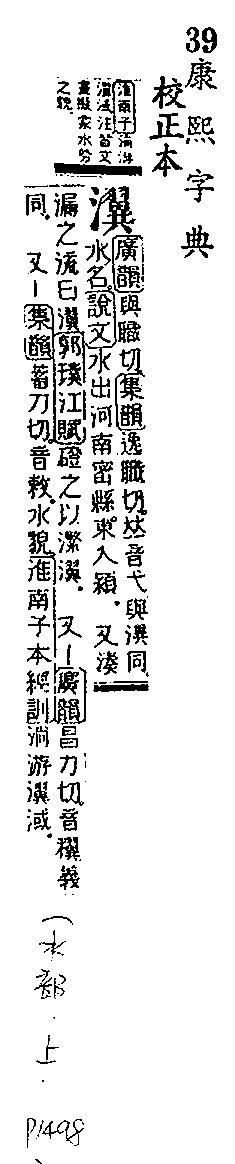 39
康熙字典
校正本
淮南子淌游
瀷淢注皆文
畫擬象水勢
之貌
瀷 廣韻與職切集韻逸職切𠀤音弋與潩同
水名說文水出河南密縣東入潁。又湊
漏之流曰瀷郭璞江賦磴之以瀿瀷。又一廣韻昌力切音穓義
同。又一集韻蓄力切音敕水貌淮南子本經訓淌游瀷淢。
(水部·上·
P1498